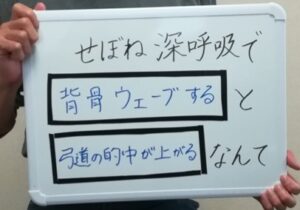 せぼね深呼吸で
背骨ウェーブすると
弓道の的中が上がるなんて